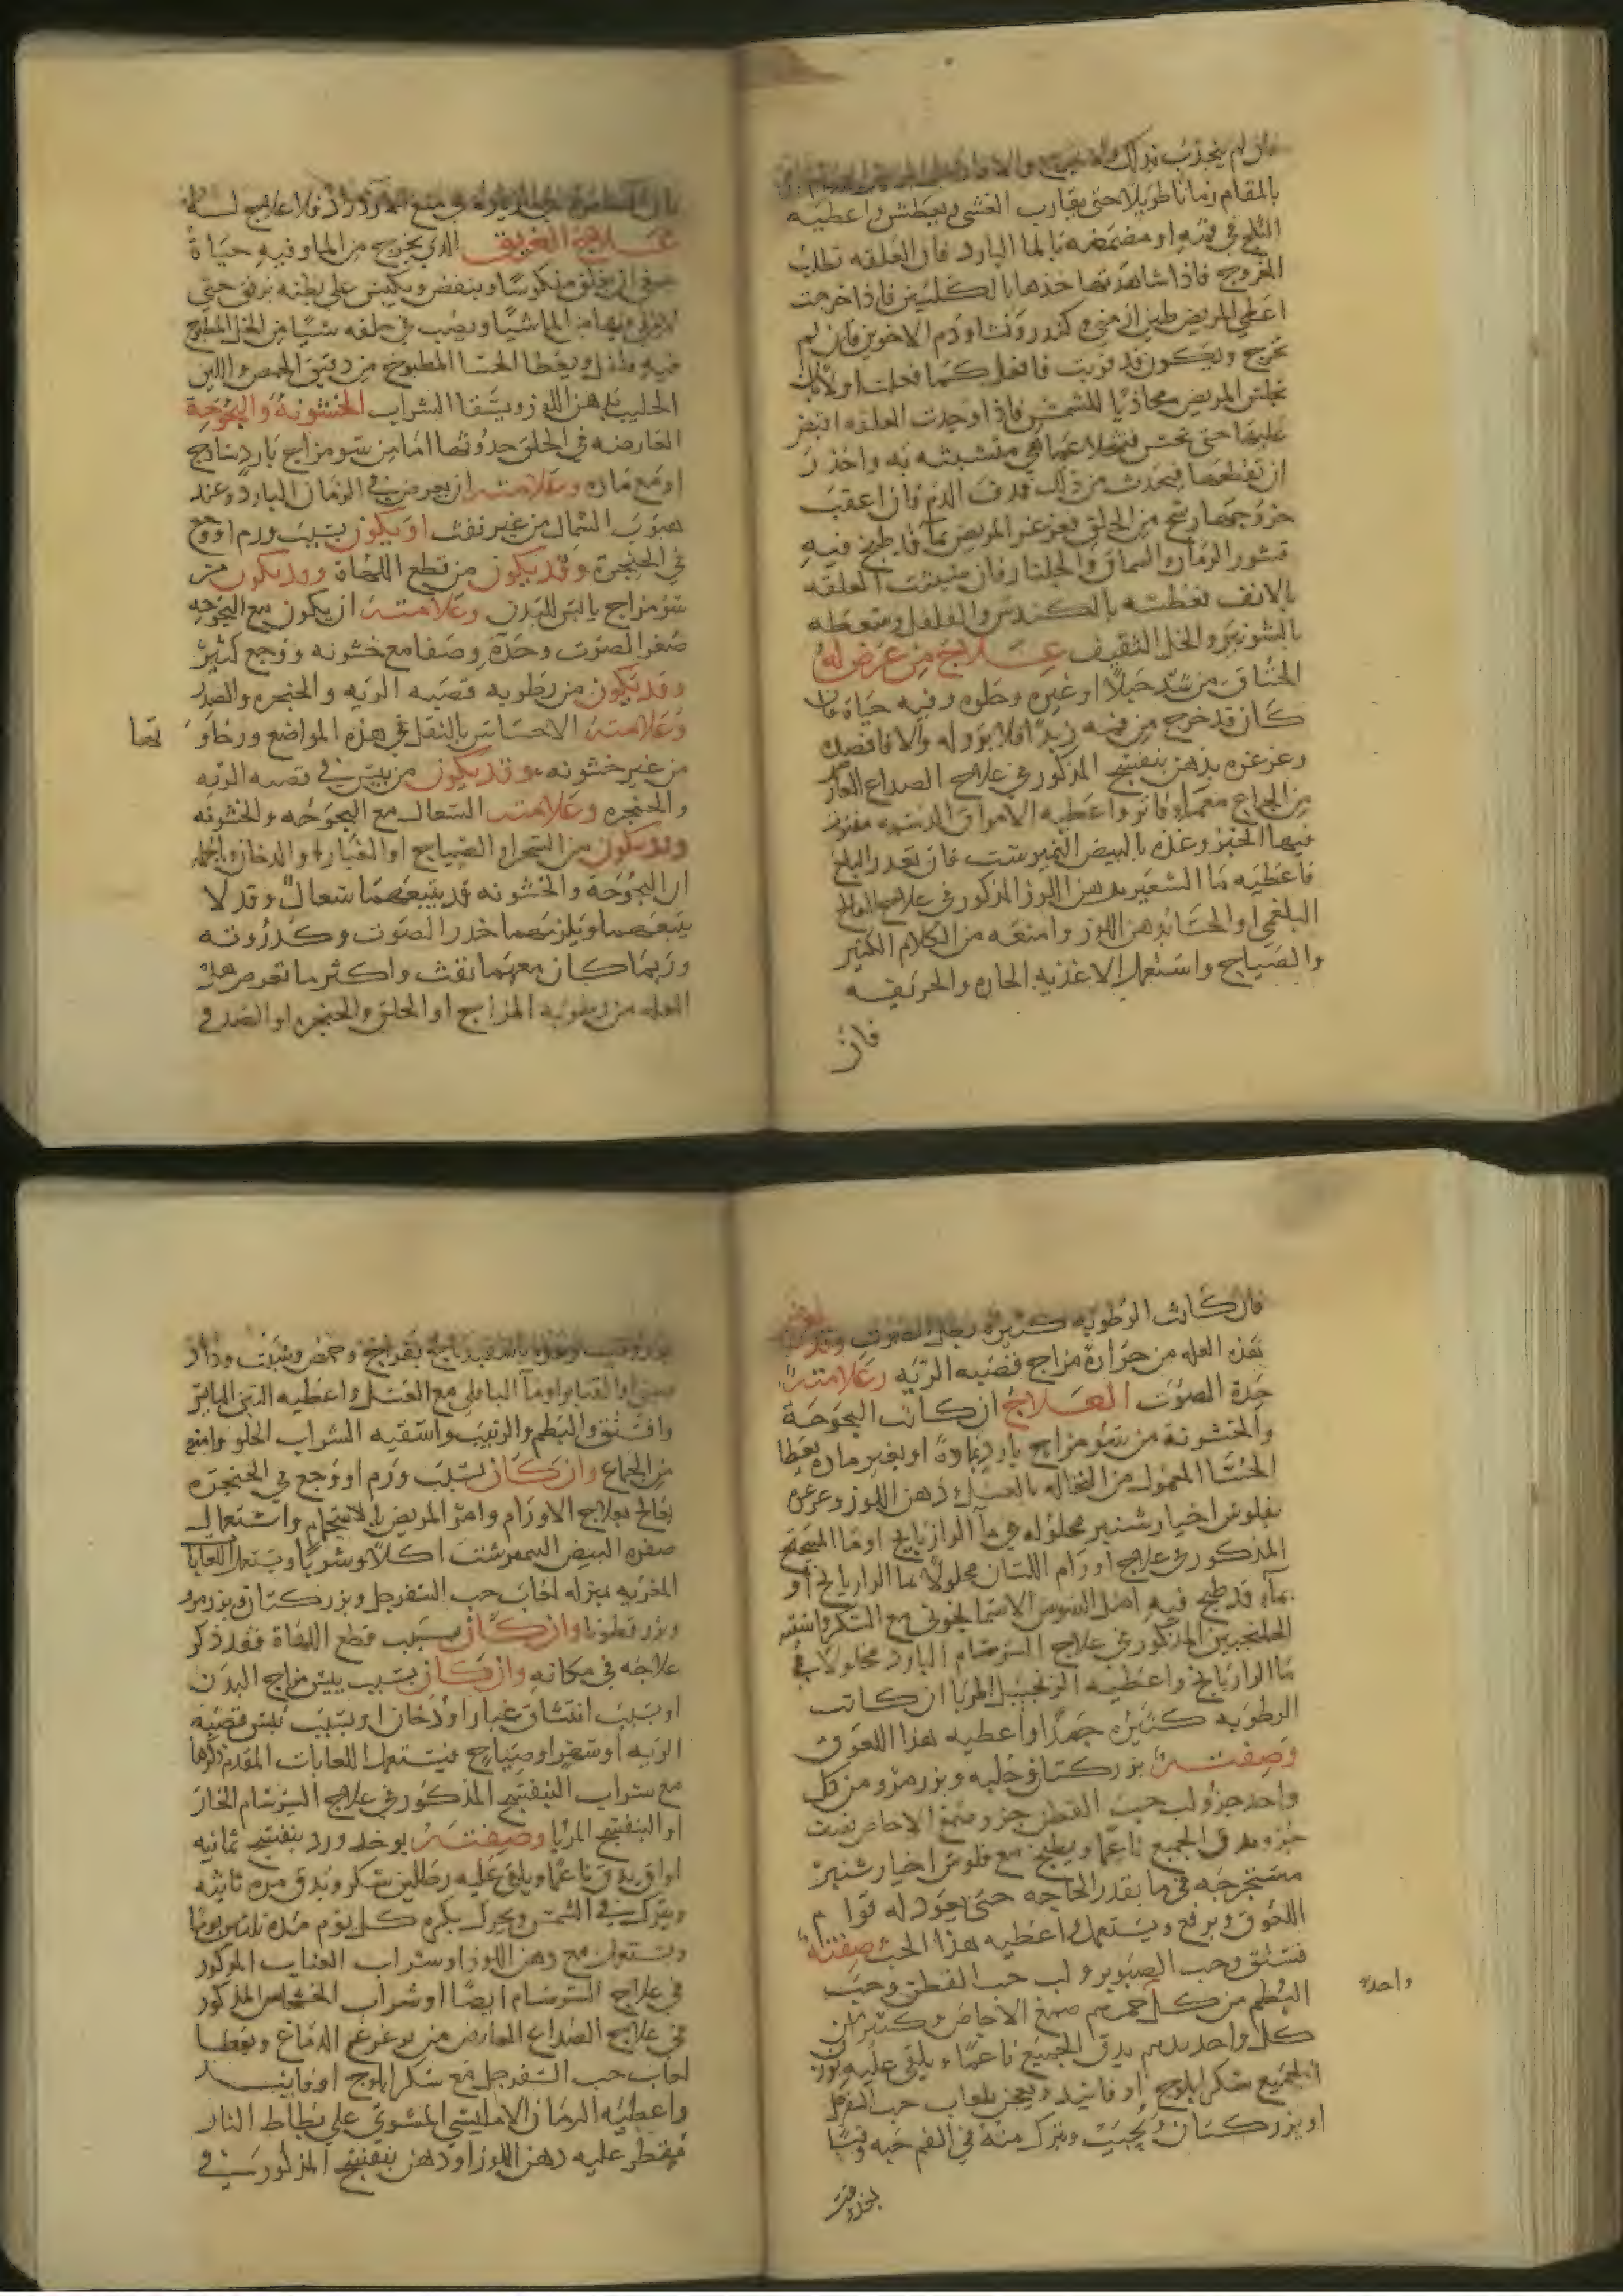 فان لم ينجذب بذلك ولا يخرج والا
بالمقام زمانا طويلا حتى يقارب الغشي ويعطش واعطيه
الثلج في فمه او مضمضه بالما البارد فان العلقه تطلب
الخروج فاذا شاهدتها خذها بالكلبتين فاذا خرجت
اعطي المريض طين ارمني وكندر ونشا ودم الاخوين فان لم
تخرج ويكون قد قربت فافعل كما فعلت اولا بان
تجلس المريض محاذيا للشمس فاذا وجدت العلقه اقبض
عليها حتى تحس فتخلا عما هي متشبثه به واحذر
ان تقطعها فيحدث من ذلك قذف الدم فان اعقب
خروجها رشح من الحلق فغرغر المريض بما قد طبخ فيه
قشور الرمان والسماق والجلنار فان تشبثت العلقه
بالانف فعطسه بالكندس والفلفل وسعطه
بالشونيز والخل الثقيف علاج من عرض له
الخناق من شد حبلا او غيره وحطوه وفيه حياة فان
كان قد خرج من فمه زبدا فلا برو له والا فافصده
وغرغره بدهن بنفسج المذكور في علاج الصداع الحار
من الجماع مع ماء فاتر واعطيه الامراق الدسمه مفتوت
فيها الخبز وغذه بالبيض النيمبرشت فان تعذر البلع
فاعطيه ما الشعير بدهن اللوز المذكور في علاج الفالج
البلغمي او الحسا بدهن اللوز وامنعه من الكلام الكثير
والصياح واستعمل الاغذيه الحاره والحريفه
فان
علاج الغريق الذي يخرج من الما وفيه حياة
ينبغي ان يعلق منكوسا وينفض ويكبس على بطنه برفق حتى
الما شيا ويصب في حلقه شيا من الخل المطبوخ
فيه فلفل ويعطا الحسا المطبوخ من دقيق الحمص واللبن
الحليب بدهن اللوز ويسقا الشراب الخشونه والبحوحة
العارضه في الحلق حدوثها اما من سو مزاج بارد ساذج
او مع ماده وعلامته ان يعرض في الزمان البارد وعند
هبوب الشمال من غير نفث او يكون بسبب ورم او وجع
في الحنجره وقد يكون من قطع اللهاة وقد يكون من
سو مزاج يابس للبدن وعلامته ان يكون مع البحوحه
صغر الصوت وحدة وصفا مع خشونه ووجع كثير
وقد يكون من رطوبه قصبه الريه والحنجره والصدر
وعلامته الاحساس بالثقل في هذه المواضع ورخاو
تها
من غير خشونه وقد يكون من يبس في قصبه الريه
والحنجره وعلامته السعال مع البحوحه والخشونه
وقد يكون من السهر او الصياح او الغبار او الدخان وبالجمله
ان البحوحة والخشونه قد يتبعهما سعال وقد لا
يتبعهما ويلزمهما خدر الصوت وكدورته
وربما كان معهما نفث واكثر ما تعرض هذه
العله من رطوبه المزاج او الحلق والحنجره او الصدر
فان كانت الرطوبه كثيره بطل الصوت وقد تعرض
هذه العله من حرارة مزاج قصبه الريه وعلامته
حدة الصوت العلاج ان كانت البحوحة
والخشونة من سو مزاج بارد بمادة او بغير ماده يعطا
الحسا المعمول من النخاله بالعسل ودهن اللوز وغرغره
بفلوس اخيار شنبر محلوله في ما الرازيانج او ما
المذكور في علاج اورام اللسان محلولا بما الرازيانج او
بماء قد طبخ فيه اصل السوس الاسمانجوني مع السكر واسقيه
الجلنجبين المذكور في علاج السرسام البارد محلولا في
ما الرازيانج واعطيه الزنجبيل المربا ان كانت
الرطوبه كثيره جدا واعطيه هذا اللعوق
وصفته بزر كتان وحلبه وبزر مرو من كل
واحد جزو لب حب القطن جزو صمغ الاجاص نصف
جزو يدق الجميع ناعما ويطبخ مع فلوس اخيار شنبر
مستخرجه في ما بقدر الحاجه حتى يعود له قوام
اللعوق ويرفع ويستعمل اعطيه هذا الحب صفته
فستق وحب الصنوبر ولب حب القطن وحب
البطم من كل
واحد
صمغ الاجاص وكثيرا من
كل واحد درهم يدق الجميع ناعما ويلقى عليه بوزن
الجميع سكر ابلوج او فانيد ويعجن بلعاب حب السفرجل
او بزر كتان ويحبب ويترك منه في الفم حبه وقتا
بعد وقت
وحمص وشبت
القنابر او ما الباقلي مع العسل واعطيه التين اليابس
والفستق والبطم والزبيب واسقيه الشراب الحلو وامنعه
من الجماع وان كان بسبب ورم او وجع في الحنجره
يعالج بعلاج الاورام وامر المريض بالاستحمام واستعمال
صفره البيض النيمبرشت اكلا وشربا ويستعمل اللعابات
المغريه بمنزله لعاب حب السفرجل وبزر كتان وبزر مرو
وبزر قطونا وان كان بسبب قطع اللهاة فقد ذكر
علاجه في مكانه وان كان بسبب يبس مزاج البدن
او بسبب انتشاق غبار او دخان او بسبب يبس قصبه
الريه او سهر او صياح فيستعمل اللعابات المقدم ذكرها
مع شراب البنفسج المذكور في علاج السرسام الحار
او البنفسج المربا وصفته يوخذ ورد بنفسج ثمانيه
اواق يدق ناعما ويلقى عليه رطلين سكر ويدق مره ثانيه
ويترك في الشمس ويحرك بكره كل يوم مده ثلاثين يوما
ويستعمل مع دهن اللوز او شراب العناب المذكور
في علاج السرسام ايضا او شراب الخشخاش المذكور
في علاج الصداع العارض من الدماغ ويعطا
لعاب حب السفرجل مع سكر ابلوج او فانيد
واعطيه الرمان الامليسي المشوي على بطاط النار
فيقطر عليه دهن اللوز او دهن بنفسج المذكور في